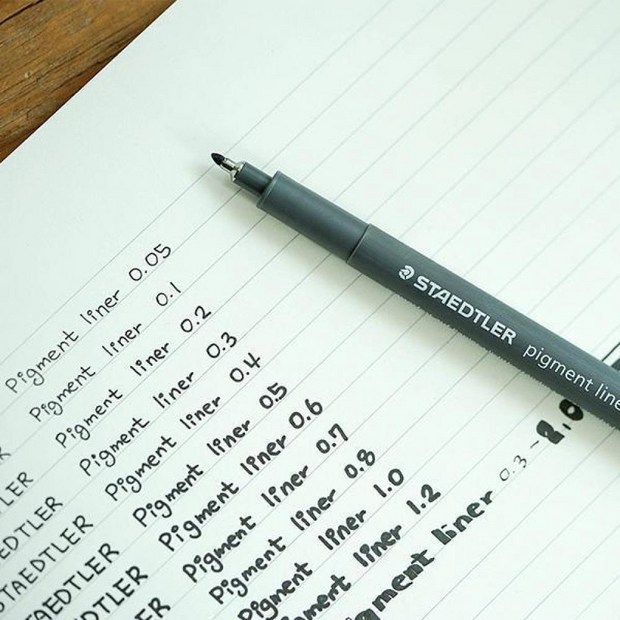 STAEDTLER pigment line
Pigment liner 0.05
R Pigment liner 0.1
LER Pigment liner 0.2
EDTLER Pigment liner 0.3
AEDTLER Pigment liner 0.4
STAEDTLER Pigment liner 0.5
STAEDTLER Pigment liner 0.6
AEDTLER Pigment liner 0.7
LER Pigment liner 0.8
Pigment liner 1.0
gment liner 1.2
gment liner 0.3 - 2.0